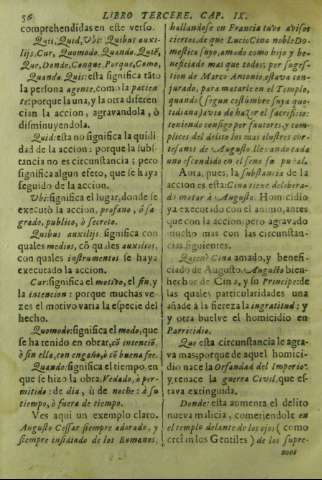 56 LIBRO TERCERE, CAP. IX.
comprehendidas en este verso.
Quis, Quid, Vbi: Quibus auxi-
lijs, Cur, Quomodo, Quando, Quiē,
Que, Donde, Conque, Porque, Como,
Quando. Quis: esta significa tãto
la persona agente, como la patien
te: porque la una, y la otra diferen
cian la accion, agravandola, ò
disminuyendola.
Quid: esta no significa la quidi
dad de la accion: porque la subs-
tancia no es circunstancia; pero
significa algun efeto, que se haya
seguido de la accion.
Vbi: significa el lugar, donde se
executò la accion, profano, ò sa
grado, publico, ò secreto.
Quibus auxilijs. significa con
quales medios, cõ quales auxilios,
con quales instrumentos se haya
executado la accion.
Cur: significa el motivo, el fin, y
la intencion: porque muchas ve-
zes el motivo varia la especie del
hecho.
Quomodo: significa el modo, que
se ha tenido en obrar, cõ intenciõ
ò sin ella, con engaño, ò cõ buena fee.
Quando: significa el tiempo, en
que se hizo la obra, Vedado, ò per-
mitido: de dia, ù de noche: à su
tiempo, ò fuera de tiempo.
Ves aqui un exemplo claro.
Augusto Cessar siempre adorado, y
siempre insidiado de los Romanos,
hallandose en Francia tuvo avisos
ciertos, de que Lucio Cina noble Do-
mestico suyo, amado como hijo y be-
neficiado mas que todos; por suges-
tion de Marco Antonio, estava con-
jurado, para matarle en el Templo,
quando (segun costumbre suya quo-
tidiana) avia de hazer el sacrificio:
teniendo consigo por fautores, y com-
plices del delito los mas ilustres cor-
tesanos de Augusto, llevando cada
uno escondido en el seno su puñal.
Aora, pues, la substancia de la
accion es esta: Cina tiene delibera-
do matar à Augusto. Homicidio
ya executado con el animo, antes
que con la accion, pero agravado
mucho mas con las circunstan-
cias siguientes.
Quien? Cina amado, y benefi-
ciado de Augusto. Augusto bien-
hechor de Cina, y su Principe: de
las quales particularidades una
añade à la fiereza la ingratitud; y
y otra buelve el homicidio en
Parricidio.
Que esta circunstancia le agra-
va mas; porque de aquel homici-
dio nace la Orfandad del Imperio:
y renace la guerra Civil, que es-
tava extinguida.
Donde: esta aumenta el delito
nueva malicia, cometiendole en
el templo delante de los ojos (como
creìan los Gentiles) de los supre-
mos